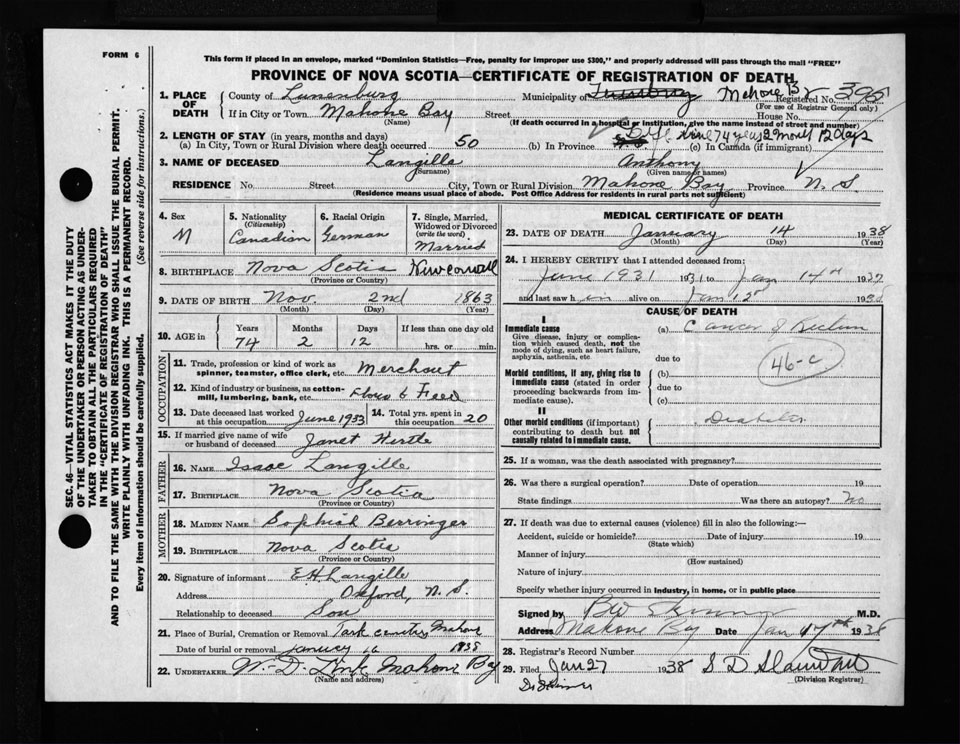 FORM 6
This form if placed in an envelope, marked "Dominion Statistics—Free, penalty for improper use $300," and properly addressed will pass through the mail "FREE"
PROVINCE OF NOVA SCOTIA—CERTIFICATE OF REGISTRATION OF DEATH
1. PLACE OF DEATH County of Lunenburg Municipality of Mahone B Registered No. 395
(For use of Registrar General only)
If in City or Town Mahone Bay Street House No.
(Name) (If death occurred in a hospital or institution, give the name instead of street and number)
2. LENGTH OF STAY (in years, months and days) 74 years 2 months 12 days
(a) In City, Town or Rural Division where death occurred 50 (b) In Province (c) In Canada (if immigrant)
3. NAME OF DECEASED Langille Anthony
(Surname) (Given name or names)
RESIDENCE No. Street City, Town or Rural Division Mahone Bay Province N. S.
(Residence means usual place of abode. Post Office Address for residents in rural parts not sufficient)
4. Sex M
5. Nationality (Citizenship) Canadian
6. Racial Origin German
7. Single, Married, Widowed or Divorced (write the word) Married
8. BIRTHPLACE Nova Scotia New Cornwall
(Province or Country)
9. DATE OF BIRTH Nov. 2nd 1863
(Month) (Day) (Year)
10. AGE in Years Months Days If less than one day
74 2 12 hrs. or min.
OCCUPATION
11. Trade, profession or kind of work as spinner, teamster, office clerk, etc. Merchant
12. Kind of industry or business, as cotton-mill, lumbering, bank, etc. Flour & Feed
13. Date deceased last worked at this occupation June 1933
14. Total yrs. spent in this occupation 20
15. If married give name of wife or husband of deceased Janet
FATHER
16. NAME Isaac Langille
17. BIRTHPLACE Nova Scotia
(Province or Country)
MOTHER
18. MAIDEN NAME Sophiah Berringer
19. BIRTHPLACE Nova Scotia
(Province or Country)
20. Signature of informant E H Langille
Address Oxford, N. S.
Relationship to deceased Son
21. Place of Burial, Cremation or Removal Park cemetery Mahone
Date of burial or removal 16 1938
22. UNDERTAKER W. D. Zink Mahone Bay
(Name and address)
MEDICAL CERTIFICATE OF DEATH
23. DATE OF DEATH January 14 1938
(Month) (Day) (Year)
24. I HEREBY CERTIFY that I attended deceased from:
June 1931 1931 to Jan 14th 1937
and last saw him alive on Jan 12th 1938
CAUSE OF DEATH
I
Immediate cause (a) Cancer of Rectum
Give disease, injury or complication which caused death, not the mode of dying, such as heart failure, asphyxia, asthenia, etc.
due to
46-c
Morbid conditions, if any, giving rise to immediate cause (stated in order proceeding backwards from immediate cause).
(b)
due to
(c)
II
Other morbid conditions (if important) contributing to death but not causally related to immediate cause.
Diabetes
25. If a woman, was the death associated with pregnancy?
26. Was there a surgical operation? Date of operation 19
State findings Was there an autopsy? no
27. If death was due to external causes (violence) fill in also the following:—
Accident, suicide or homicide? Date of injury 19
(State which)
Manner of injury
(How sustained)
Nature of injury
Specify whether injury occurred in industry, in home, or in public place
Signed by M.D.
Address Mahone Bay Date Jan 17th 1938
28. Registrar's Record Number
29. Filed Jan 27 1938 S D
(Division Registrar)
SEC. 46—VITAL STATISTICS ACT MAKES IT THE DUTY
OF THE UNDERTAKER OR PERSON ACTING AS UNDER-
TAKER TO OBTAIN ALL THE PARTICULARS REQUIRED
IN THE "CERTIFICATE OF REGISTRATION OF DEATH"
AND TO FILE THE SAME WITH THE DIVISION REGISTRAR WHO SHALL ISSUE THE BURIAL PERMIT.
WRITE PLAINLY WITH UNFADING INK. THIS IS A PERMANENT RECORD.
Every item of information should be carefully supplied. (See reverse side for instructions.)